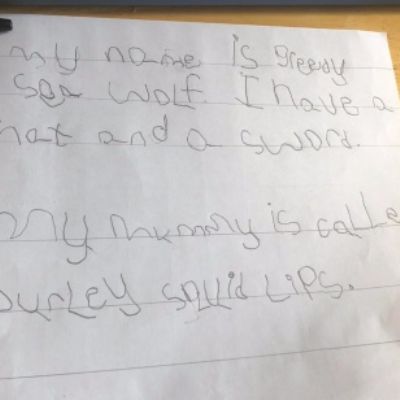 my name is greedy
sea wolf. I have a
hat and a sword.
My mummy is calle
ourley squid Lips.